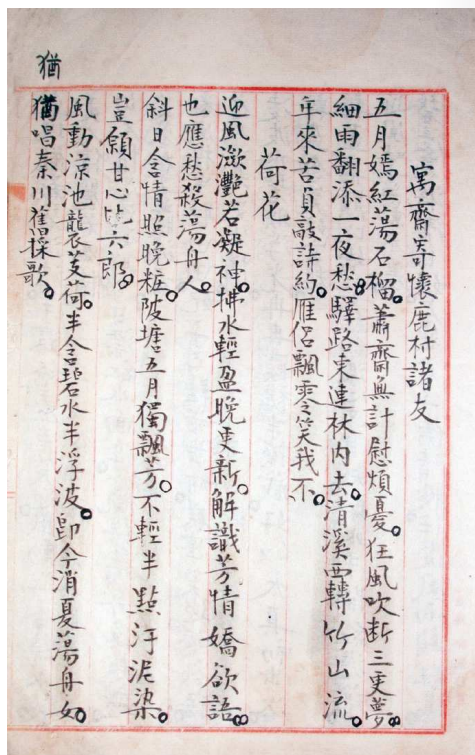 猶
寓齋寄懷鹿村諸友
五月嫣紅蕩石榴。蕭齋無計慰煩憂。狂風吹斷三更夢。
細雨翻添一夜愁。驛路東連林內去。清溪西轉竹山流。
年來苦負敲詩約。雁侶飄零笑我不。
荷花
迎風瀲灩若凝神。拂水輕盈晚更新。解識芳情嬌欲語。
也應愁殺蕩舟人。
斜日含情照晚粧。陂塘五月獨飄芳。不輕半點汙泥染。
豈願甘心比六郎。
風動涼池襲芰荷。半含碧水半浮波。即今消夏蕩舟女。
猶唱秦川舊採歌。